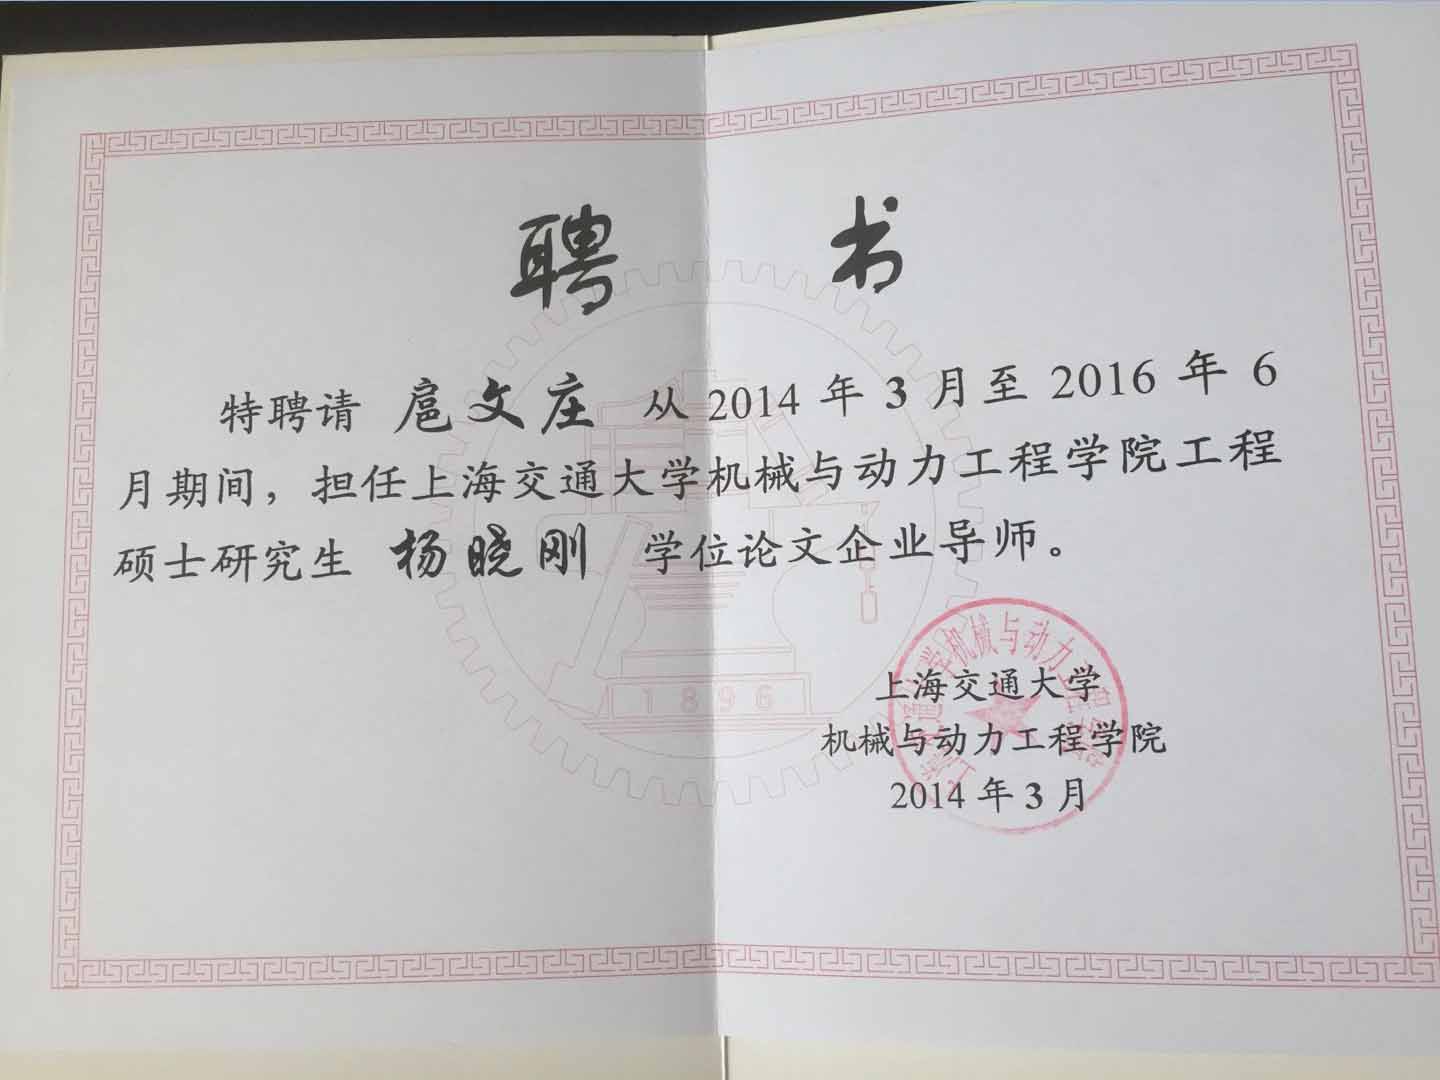 聘 书
特聘请 扈文庄 从 2014 年 3 月至 2016 年 6
月期间，担任上海交通大学机械与动力工程学院工程
硕士研究生 杨晓刚 学位论文企业导师。
1896
上海交通大学
机械与动力工程学院
2014 年 3 月
上海交通大学机械与动力工程学院